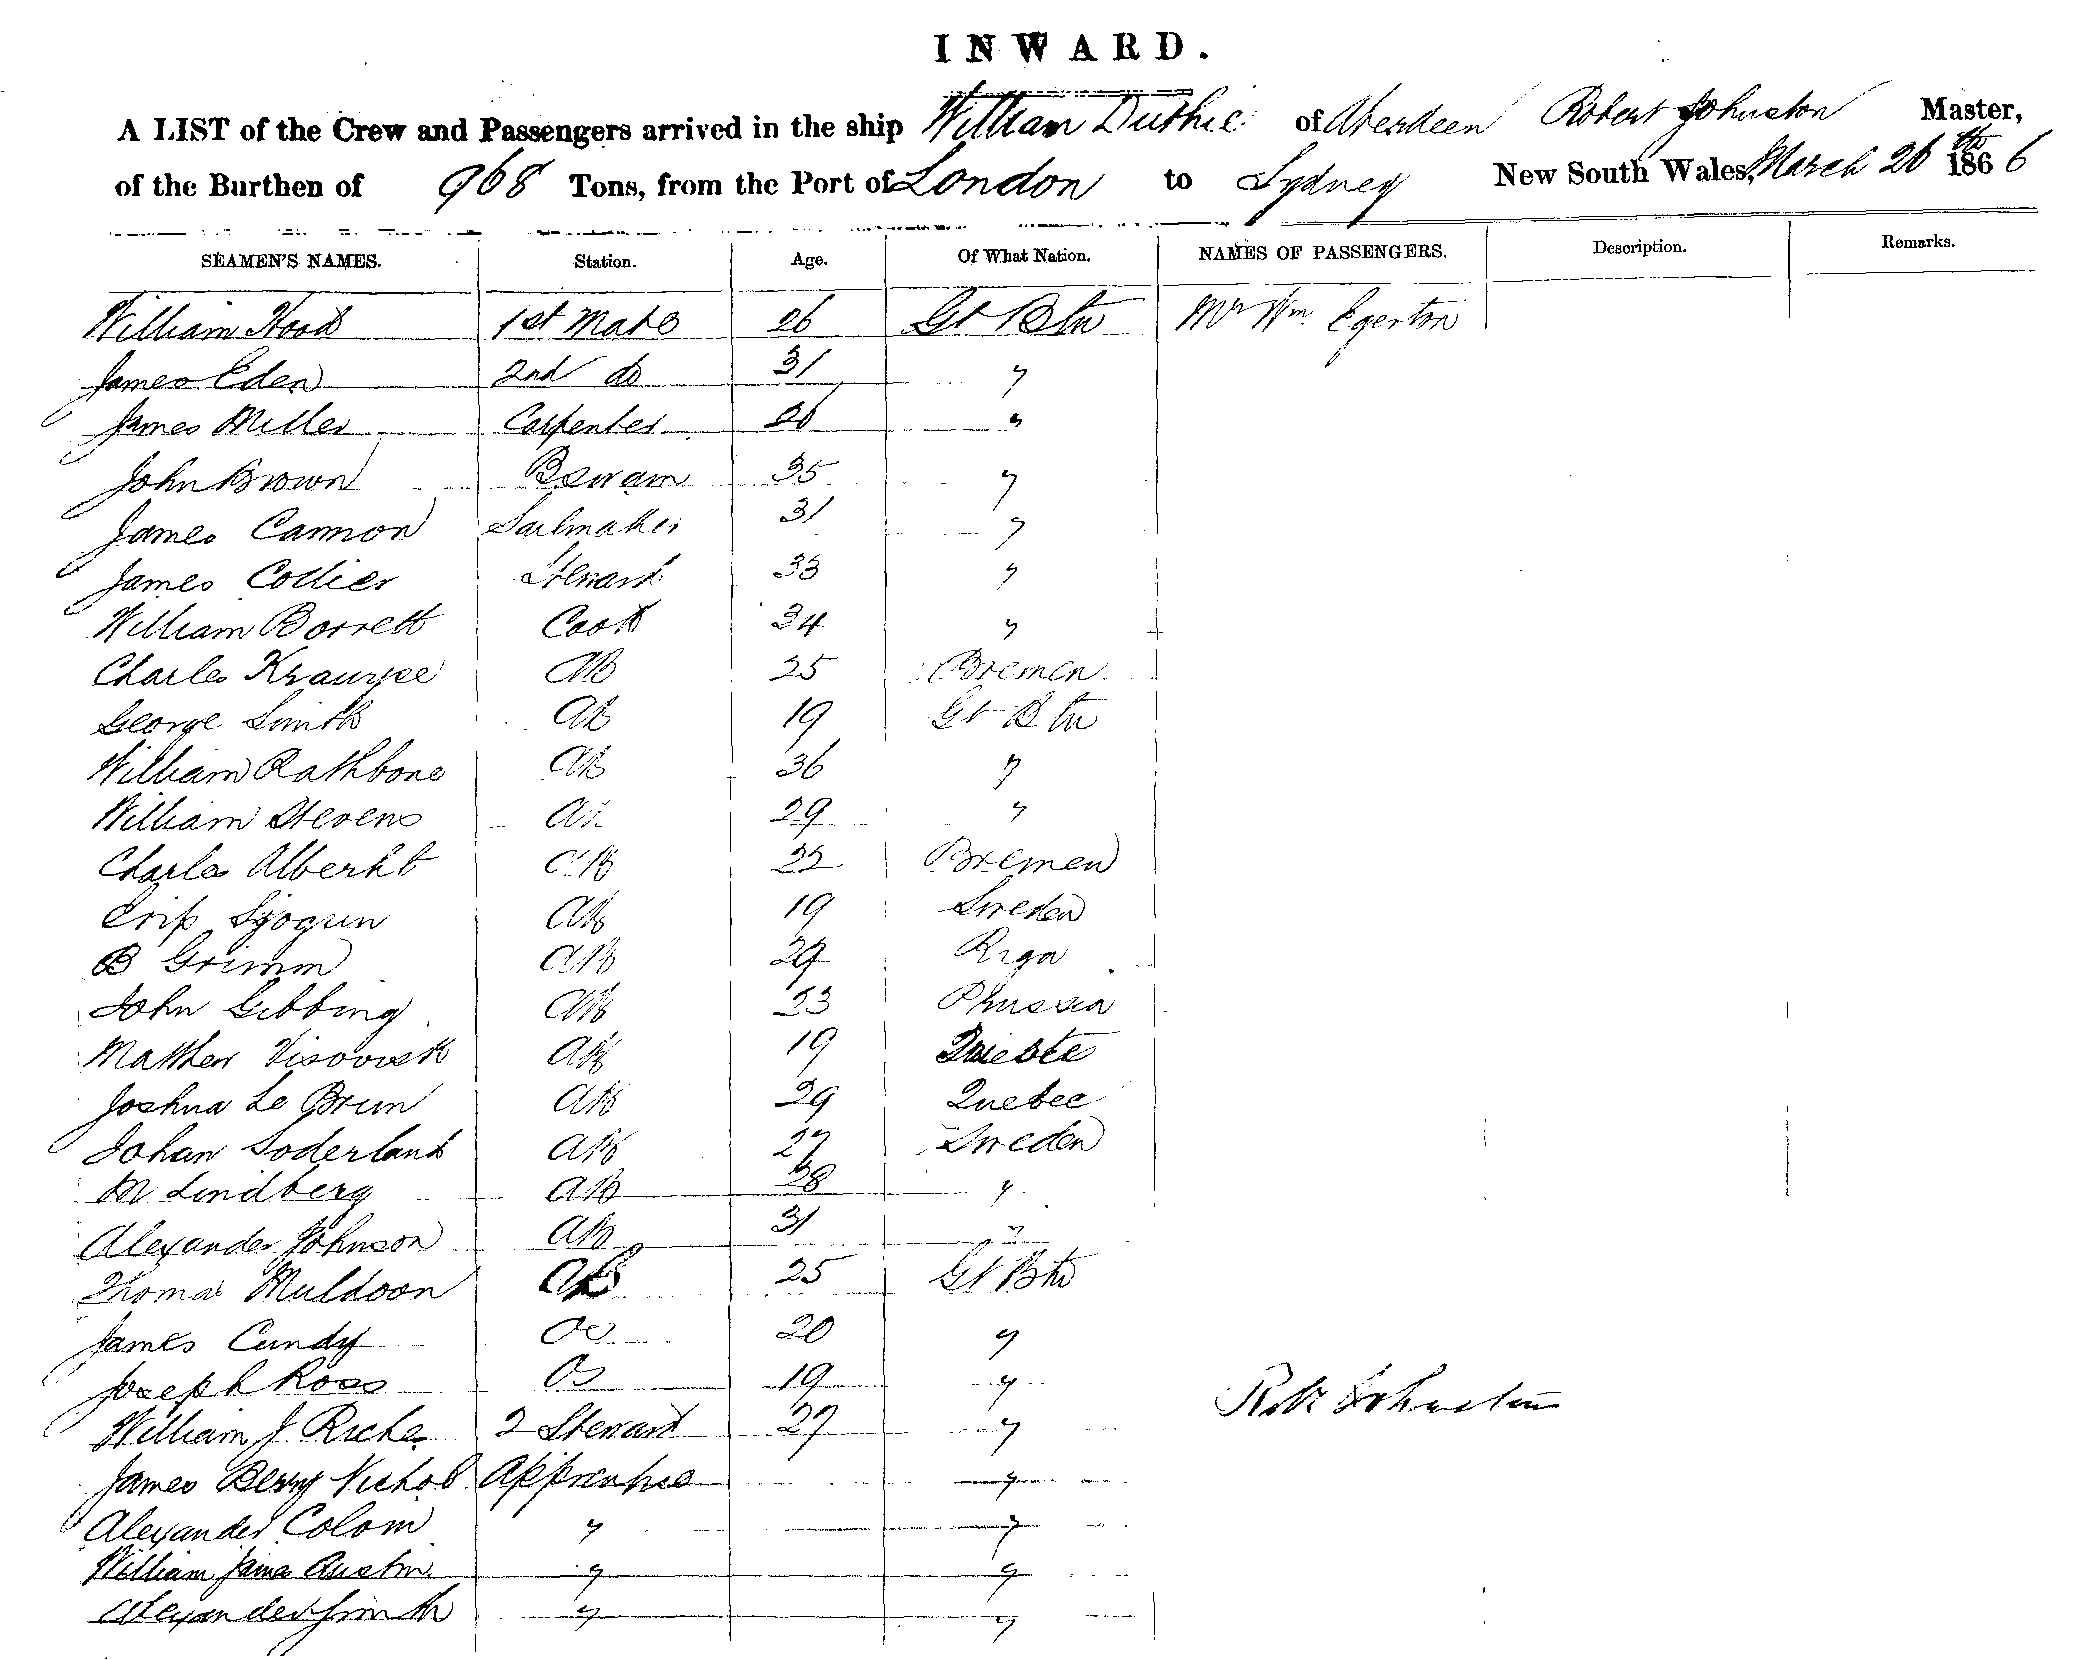 INWARD.
A LIST of the Crew and Passengers arrived in the ship William Duthie of Aberdeen Robert Johnston Master,
of the Burthen of 968 Tons, from the Port of London to Sydney New South Wales, March 26th 1866
SEAMEN'S NAMES. Station. Age. Of What Nation. NAMES OF PASSENGERS. Description. Remarks.
William Wood 1st Mate 26 Gt Btn Mr Wm. Egerton
James Eden 2nd do 31 "
James Miller Carpenter 26 "
John Brown Boswain 35 "
James Cannon Sailmaker 31 "
James Collier Steward 33 "
William Borrett Cook 34 "
Charles AB 25 Bremen
George Smith AB 19 Gt Btn
William Rathbone AB 36 "
William Stevens AB 29 "
Charles Alberkt AB 22 Bremen
Sjogrun AB 19 Sweden
B Grimm AB 29 Riga
John Gibbing AB 23 Phussia
Matthew AB 19 Trieste
Joshua Le Brun AB 29 Quebec
Johan Soderland AB 27 Sweden
M Lindberg AB 38 "
Alexander Johnson AB 31 "
Thomas Muldoon AB 25 Gt Btn
James Cundy OS 20 "
Joseph Ross OS 19 "
Robt Johnston
William J. 2 Steward 27 "
James Berry Nichol Apprentice "
Alexander Colom " "
William James Austin " "
Alexander Smith " "